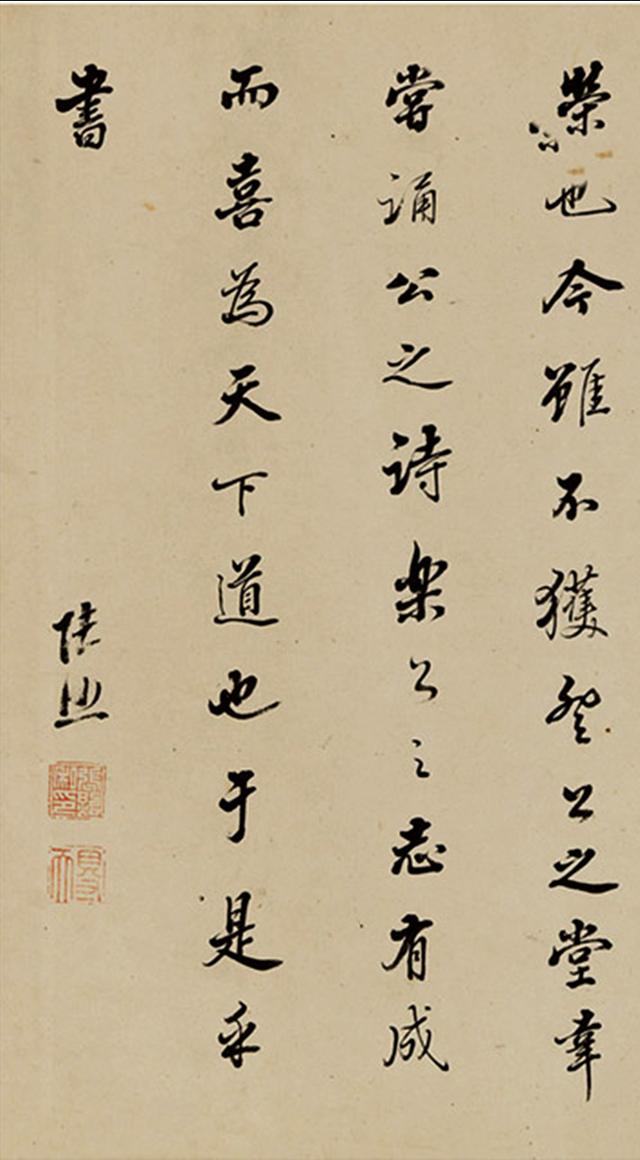 榮也今雖不獲登公之堂幸
嘗誦公之詩樂公之志有成
而喜為天下道也于是乎
書
張照